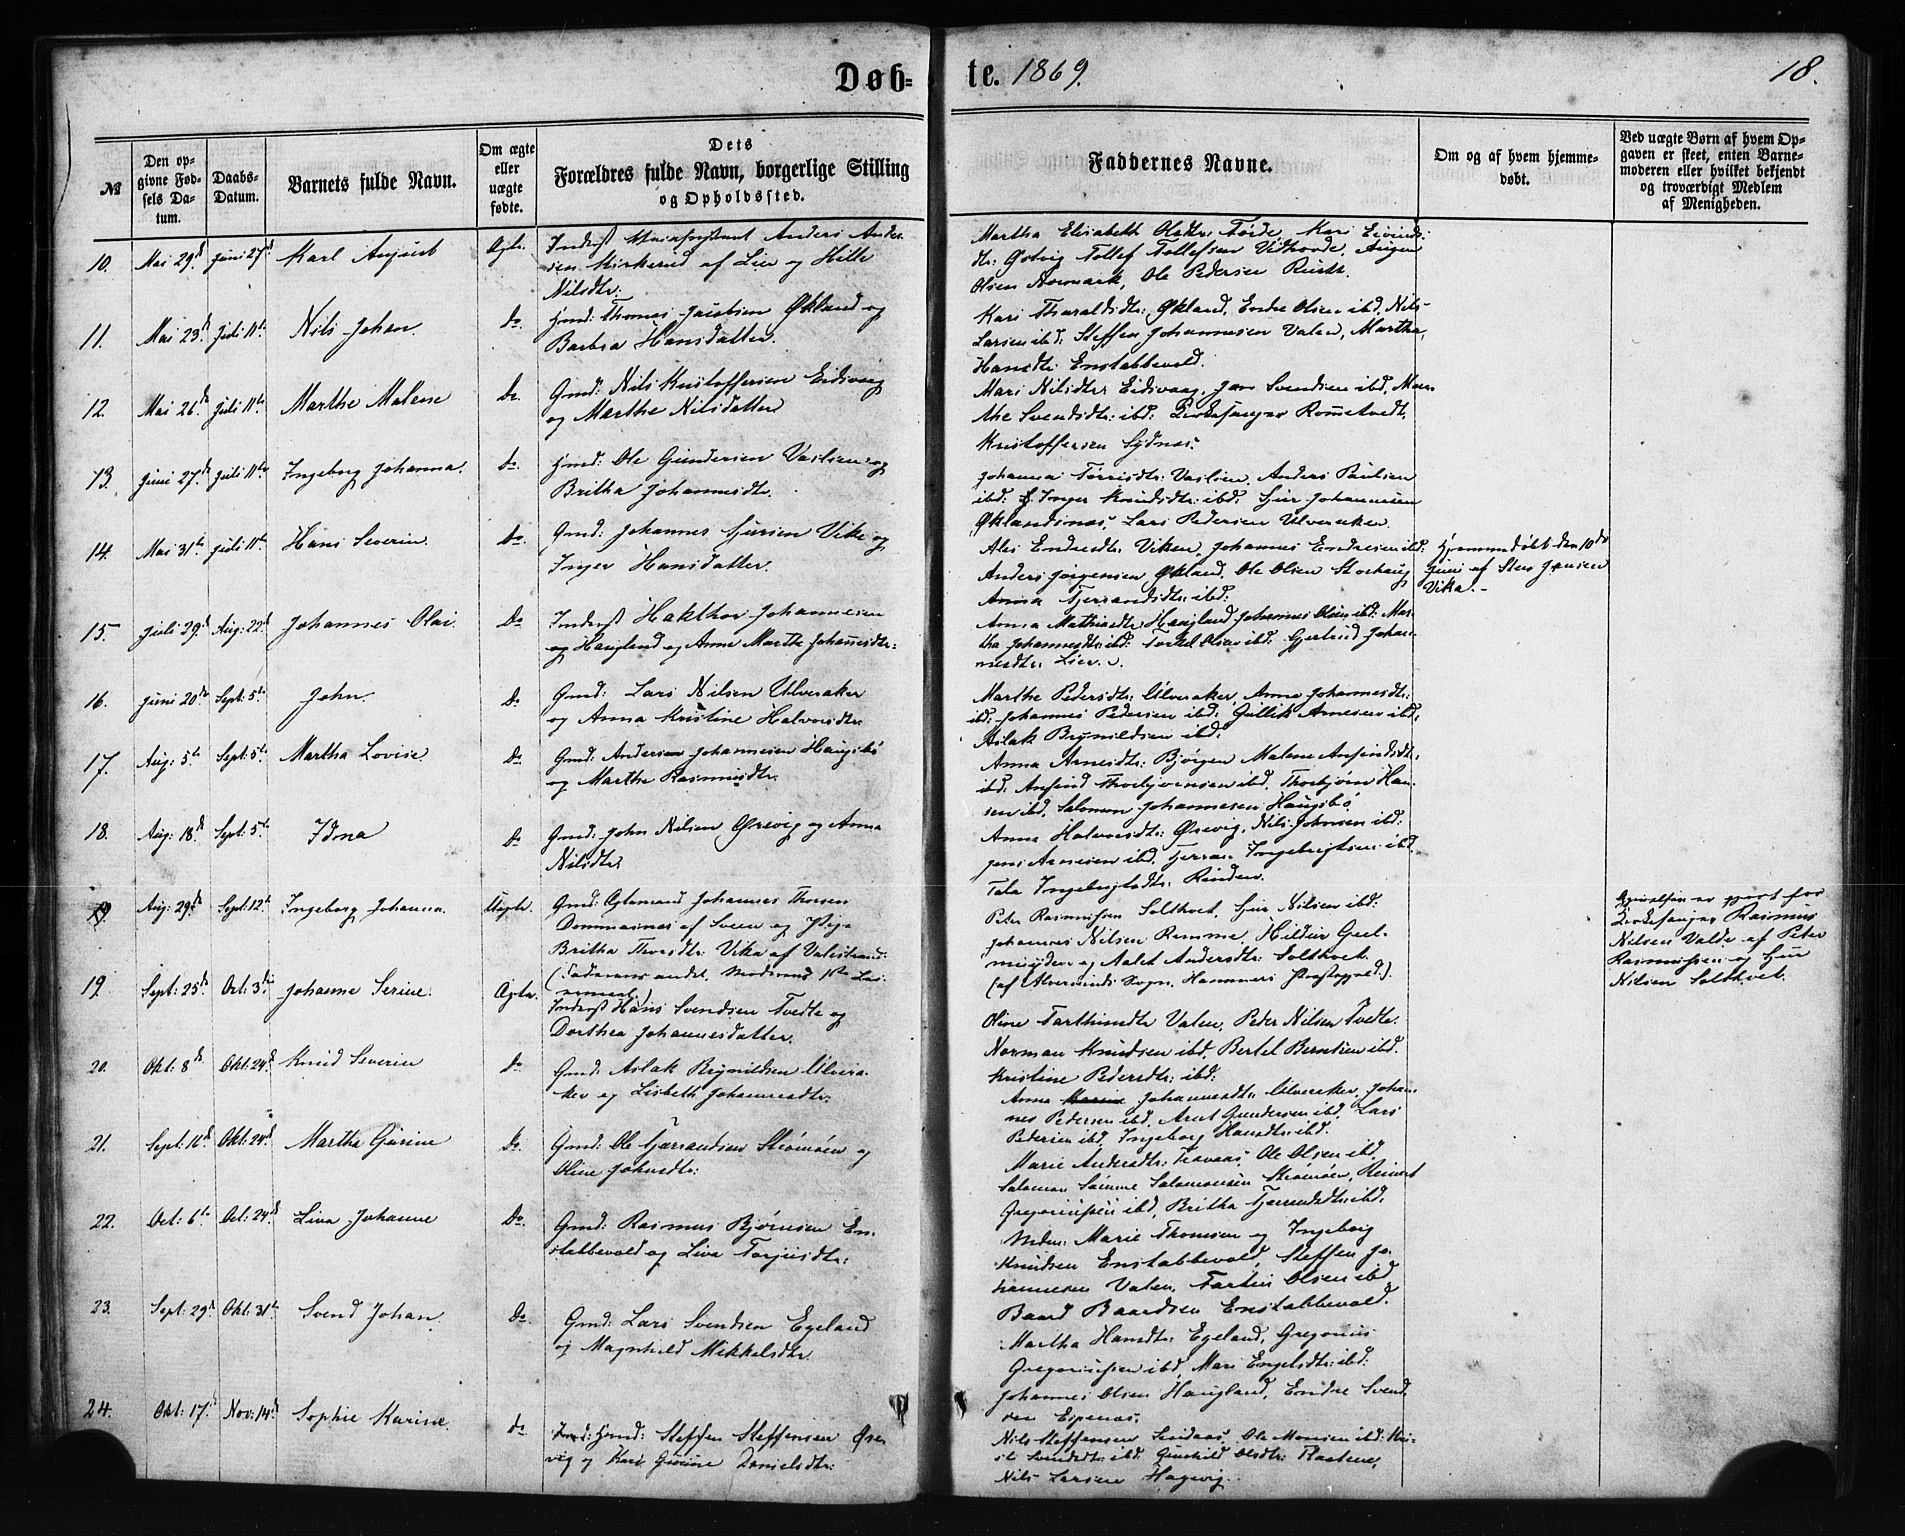 Døb= te. 1869. 18.
№
Den op-
givne Fød-
sels Da-
tum.
Daabs-
Datum.
Barnets fulde Navn.
Om ægte
eller
uægte
fødte.
Dets
Forældres fulde Navn, borgerlige Stilling
og Opholdssted.
Faddernes Navne.
Om og af hvem hjemme-
døbt.
Ved uægte Børn af hvem Op-
gaven er skeet, enten Barne-
moderen eller hvilket bekjendt
og troværdigt Medlem
af Menigheden.
10. Mai 29d Juni 27d Karl August Ægte.
Anders Ander-
sen Kirkerud af Lier og Hille
Nilsdtr:
Martha Elisabeth Førde, Kari
Tollef Tollefsen
Olsen Ole Pedersen
11. Mai 23d Juli 11te Nils Johan. Do
Hmd: Thomas Jacobsen Økland og
Barbra Hansdatter.
Kari Tharaldsdtr: Økland, Endre Olsen ibd, Nils
Larsen ibd: Steffen Johannesen Valen, Martha
Hansdtr: Enstabbevold.
12. Mai 26d Juli 11te Marthe Malene Do
Gmd: Nils Kristoffersen Eidsvaag
og Marthe Nilsdatter
Mari Nilsdtr: Eidsvaag, Svendsen ibd, Mar-
the Svendsdtr: ibd: Kirkesanger Rommetvedt,
Kristoffersen Sydnæs.
13. Juni 27d Juli 11te Ingeborg Johanna. Do
Hmd: Ole Gundersen og
Britha Johannesdtr.
Johanna Anders Paulsen
ibd: Inger Knudsdtr: ibd: Sjur Johannesen
Øklandsnæs, Lars Pedersen Ulveraker.
14. Mai 31te Juli 11te Hans Severin. Do
Gmd: Johannes Sjursen Vike og
Inger Hansdatter.
Ales Endresdtr: Viken, Johannes Endresen ibd:
Anders Jørgensen Økland, Ole Olsen Storhaug
Anna Tjerrandsdtr: ibd:
Hjemmedøbt den 10de
Juni af Sten Jensen
Vika.-
15. Juli 29d Aug: 22d Johannes Olai. Do
Johannesen
og Haugland og Anne Marthe Johannesdtr:
Anna Mathiasdtr: Haugland Johannes Olsen ibd: Mar-
tha Johannesdtr: ibd: Torkel Olsen ibd: Gjertrud Johan-
nesdtr: Lier.
16. Juni 20de Sept: 5te John. Do
Gmd: Lars Nilsen Ulveraker
og Anna Kristine Halvorsdtr:
Marthe Pedersdtr: Ulveraker, Anna Johannesdtr:
ibd: Johannes Pedersen ibd: Gullik Arnesen ibd,
Aslak Brynildsen ibd:
17. Aug: 5te Sept: 5te Martha Lovise. Do
Gmd: Andersen Johannesen Haugsbø
og Marthe Rasmusdtr:
Anna Arnesdtr: Bjørgen, Malene Ansfindsdtr:
ibd: Ansfind Thorbjørnsen ibd, Thorbjørn Han-
sen ibd, Salomon Johannesen Haugsbø,
18. Aug: 18d Sept: 5te Idna Do
Gmd: John Nilsen Ørevig og Anna
Nilsdtr:
Anna Halvorsdtr: Ørevig, Nils Johnsen ibd:
Jens Arnesen ibd, Ingebrigtsen ibd.
Tala Ingebrigtsdtr: Rinden.
19 Aug: 29d Sept: 12te Ingeborg Johanna. Uægte.
Gmd: Johannes Thorsen
Dommasnæs af Sveen og Pige
Britha Thorsdtr: Vika af Valestrand.
(Faderens andet, Moderens 1ste Lei-
ermaal.)
Peter Rasmussen Solthvet, Sjur Nilsen ibd:
Johannes Nilsen Remme,
og Aalet Andersdtr: Solthvet.
(af Alversunds Sogn, Hammers Præstegjeld).
er gjort for
Kirkesanger Rasmus
Nilsen Valde af Peter
Rasmussen og Sjur
Nilsen Solthvet.
19. Sept: 25d Oct: 3die Johanne Serine. Ægte.
Hans Svendsen Tvedte og
Dorthea Johannesdatter.
Oline Valen, Peder Nilsen Tvedte.
Norman Knudsen ibd, Bertel Berntsen ibd.
Kristine Pedersdtr: ibd:
20. Okt: 8d Okt: 24d Knud Severin Do
Gmd: Aslak Brynildsen Ulvera-
ker og Lisbeth Johannesdtr:
Anna Johannesdtr: Ulveraker, Johan-
nes Pedersen ibd, Arnt Gundersen ibd, Lars
Pedersen ibd, Ingeborg Hansdtr: ibd.
21. Sept: 16d Okt: 24d Martha Gurine Do
Gmd: Ole Gjerrandsen Strømøen og
Oline Johnsdtr:
Marie Andersdtr: Ole Olsen ibd,
Salomon Salomonsen Strømøen, Reinert
Gregoriussen ibd, Britha Tjerrandsdtr: ibd.
22. Oct: 6te Oct: 24d Liva Johanne Do
Gmd: Rasmus Bjørnsen En-
stabbevold og Liva Torjusdtr:
Marie Thomsen og Ingeborg
Knudsen Enstabbevold, Steffen Jo-
hannesen Valen, Olsen ibd,
Baard Baardsen Enstabbevold.
23. Sept: 29d Okt: 31te Svend Johan. Do
Gmd: Lars Svendsen Egeland
og Magnhild Mikkelsdtr.
Martha Hansdtr: Egeland, Gregorius
Gregoriussen ibd, Mari Engelsdtr: ibd:
Johannes Olsen Haugland, Endre Svend-
sen Espenæs.
24. Okt: 17d Nov: 14d Sophie Karine. do
Hmd: Steffen Steffensen Øre-
vig og Kari Gurine Danielsdtr:
Nils Steffensen Ole Monsen ibd:
Svendsdtr: ibd Gunhild Olsdtr:
Nils Larsen Hagevig.